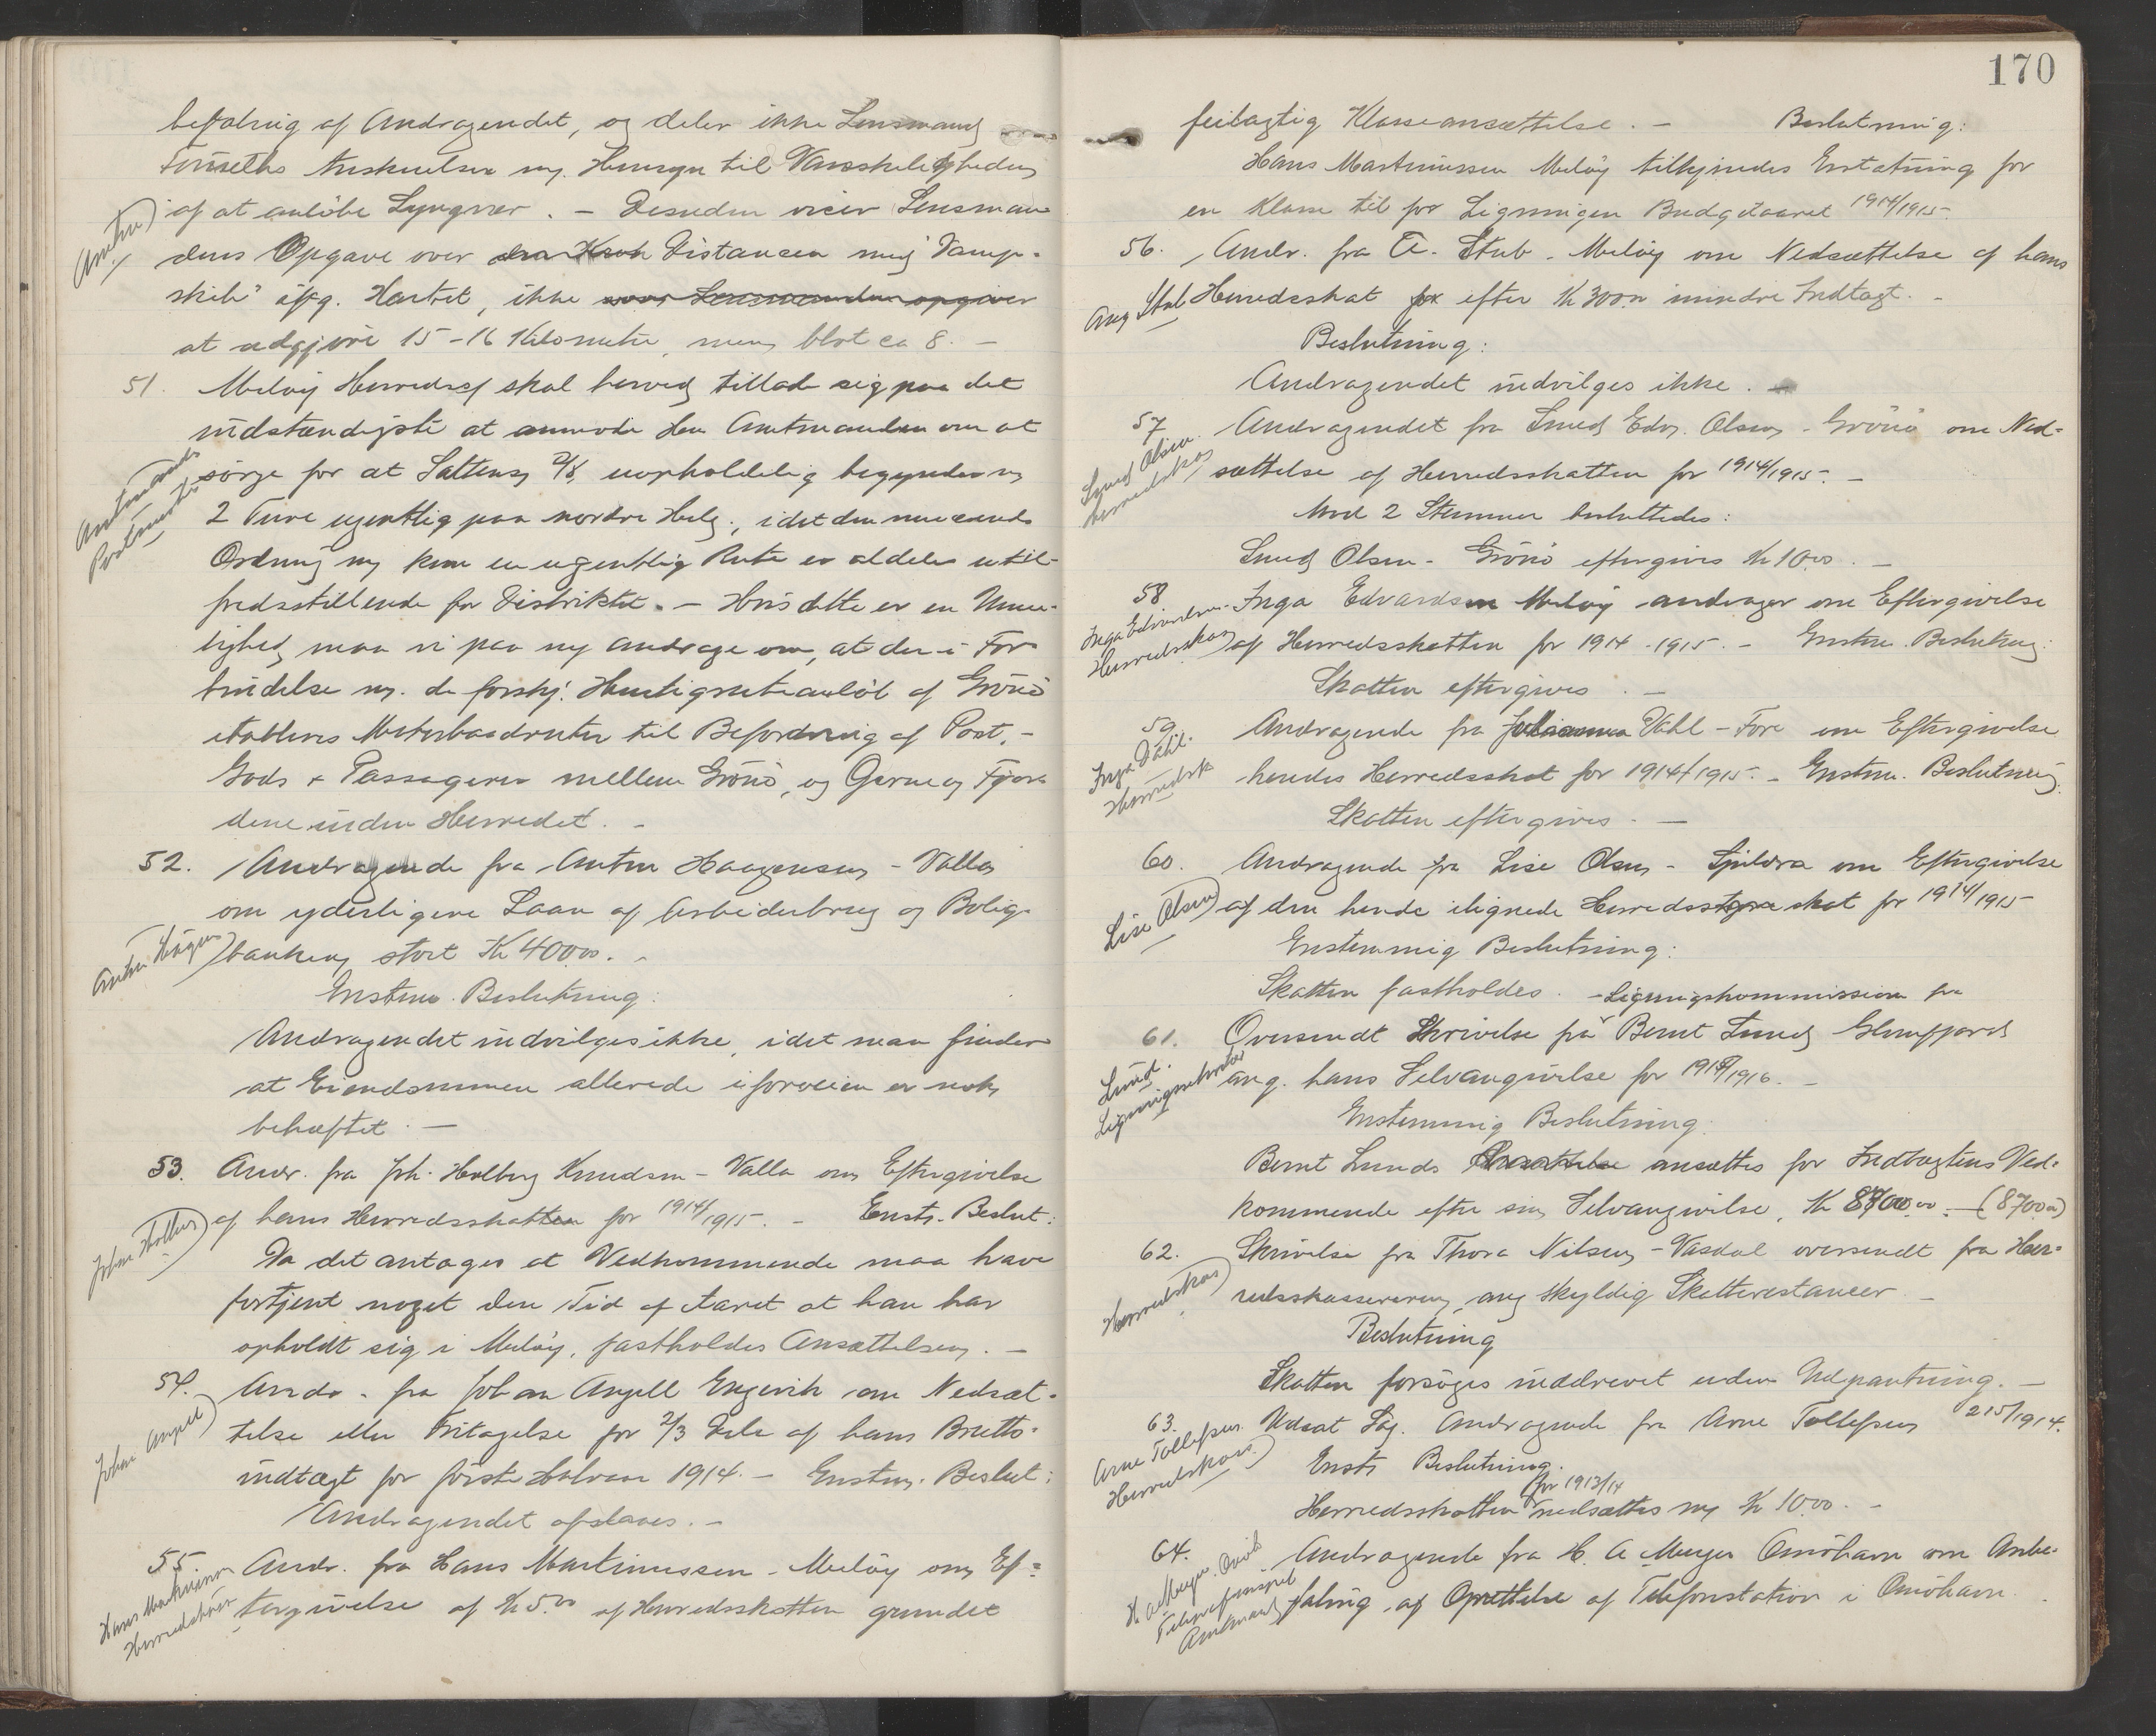 befaling af Andragendet, og deler ikke Lensmand
Tönseths Anskuelser m. Hensyn til Vanskeligheden
af at anlöbe Lyngvær. – Desuden viser Lensman-
Amtm
dens Opgave over Distancen med Damp-
skib iflg. Kartet, ikke
at udgjöre 15-16 Kilometer, men blot ca 8. –
51. Melöy Herredsst skal herved tillade sig paa det
indstændigste at anmode Herr Amtmanden om at
sörge for at Saltens D/S, uopholdelig begynder m
Amtmand
Postmester
2 Ture ugentlig paa nordre Helg., idet den nuværende
Ordning m kun en ugentlig Rute er aldeles util-
fredsstillende for Distriktet. – Hvis dette er en Umu-
lighed, maa vi paa ny andrage om, at der i For-
bindelse m. de forskj. Hurtigruteanlöb af Grönö
etableres Motorbaadruter til Befordring af Post, –
Gods & Passagerer mellem Grönö, og Öerne og Fjor-
dene inden Herredet. –
52. Andragende fra Anton Haagensen – Valla
om yderligere Laan af Arbeiderbrug og Bolig-
Anton Hågens
banken, stort Kr 400.00. –
Enstem. Beslutning:
Andragendet indvilges ikke, idet man finder
at Eiendommen allerede i forveien er nok
behæftet. –
53. Andr. fra Joh. Holberg Knudsen – Valla om Eftergivelse
af hans Herredsskatten for 1914/1915. – Enst. Beslut:
Johan Holber
Da det antages at Vedkommende maa have
fortjent noget den Tid af Aaret at han har
opholdt sig i Melöy, fastholdes Ansættelsen. –
54. Andr. fra Johan Angell Engavik om Nedsæt-
telse eller Fritagelse for 2/3 Dele af hans Brutto-
Johan Angell
indtægt for förste Halvaar 1914. – Enstem. Beslut:
Andragendet afslaaes. –
55 Andr. fra Hans Martinussen – Melöy om Ef-
Hans Martinussen
Herredskasser
tergivelse af Kr 5.00 af Herredsskatten grundet
170
feilagtig Klasseansættelse. – Beslutning:
Hans Martinussen Melöy tilkjendes Erstatning for
en Klasse til for Ligningen Budgetaaret 1914/1915.
56. Andr. fra A. Stub – Melöy om Nedsættelse af hans
Aug Stub
Herredsskat efter Kr 300.00 mindre Indtægt. –
Beslutning:
Andragendet indvilges ikke. –
57 Andragendet fra Smed Edv. Olsen – Grönö om Ned-
Smed Olsen
Herredskas
sættelse af Herredsskatten for 1914/1915. –
Mod 2 Stemmer besluttedes:
Smed Olsen – Grönö eftergives Kr 10.00. –
58 Inga Edvardsen Melöy andrager om Eftergivelse
Inga Edvardsen
Herredskas
af Herredsskatten for 1914-1915. – Enstem. Beslutning:
Skatten eftergives. –
59 Andragende fra Dahl – Fore om Eftergivelse
Inga Dahl.
Herredsk
hendes Herredsskat for 1914/1915. – Enstem. Beslutning:
Skatten eftergives. –
60. Andragende fra Lise Olsen – Spildra om Eftergivelse
Lise Olsen
af den hende ilignede Herredsskat for 1914/1915
Enstemmig Beslutning:
Skatten fastholdes. – Ligningskommissionen fra
61. Oversendt Skrivelse fra Bernt Lund, Glomfjord
Lund.
ang. hans Selvangivelse for 1915/1916. –
Enstemmig Beslutning:
Bernt Lunds ansættes for Indtægtens Ved-
kommende efter sin Selvangivelse, Kr 8700.00. – (8700.00)
62. Skrivelse fra Thora Nilsen – Vasdal oversendt fra Her-
Herredskas
redskassereren, ang skyldig Skatterestancer. –
Beslutning
Skatten forsöges inddrevet uden Udpantning. –
63. Udsat Sag. Andragende fra Arne Tollefsen 215/1914.
Arne Tollefsen
Herredskass.
Enst. Beslutning.
for 1913/14
Herredsskatten nedsættes m Kr 10.00. –
64. Andragende fra H. A Meyer Önöhavn om Anbe-
Amtmand
faling af Oprettelse af Telefonstation i Önöhavn.